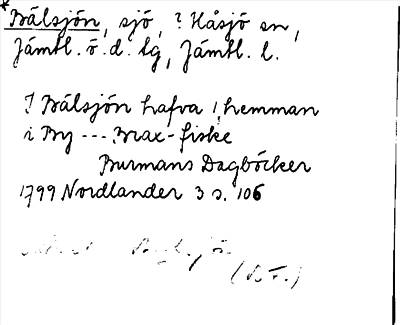 *Bälsjön, sjö, ? Håsjö sn,
Jämtl. ö. d. tg, Jämtl. l.
? Bälsjön hafva 1 hemman
i By --- Brax-fiske
Burmans Dagböcker
1799 Nordlander 3 s. 106